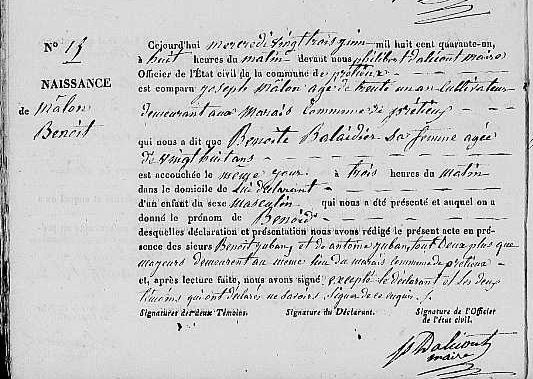 N° 15
NAISSANCE
de Mâlon
Benoit
Cejourd'hui mercredi vingt trois juin mil huit cent quarante-un,
à huit heures du matin devant nous philibert Daléçont maire
Officier de l'État civil de la commune de prétieux
est comparu joseph Mâlon agé de trente un an Cultivateur
demeurant aux Marais Commune de prétieux
qui nous a dit que Benoite Baláidier Sa femme agée
de vingt huit ans
est accouchée le même jour à trois heures du Matin
dans le domicile de Lui déclarant
d'un enfant du sexe Masculin qui nous a été présenté et auquel on a
donné le prénom de Benoid
desquelles déclaration et présentation nous avons rédigé le présent acte en pré-
sence des sieurs Benoit juban, et de antoine juban, tout deux plus que
mayeurs demeurent au même lieu du marais commune de prétieux
et, après lecture faite, nous avons signé excepté le déclarant et les deux
témoins qui ont déclaré ne savoir Signer de ce enquis ./.
Signatures des deux Témoins.
Signature du Déclarant.
Signature de l'Officier
de l'état civil.
maire